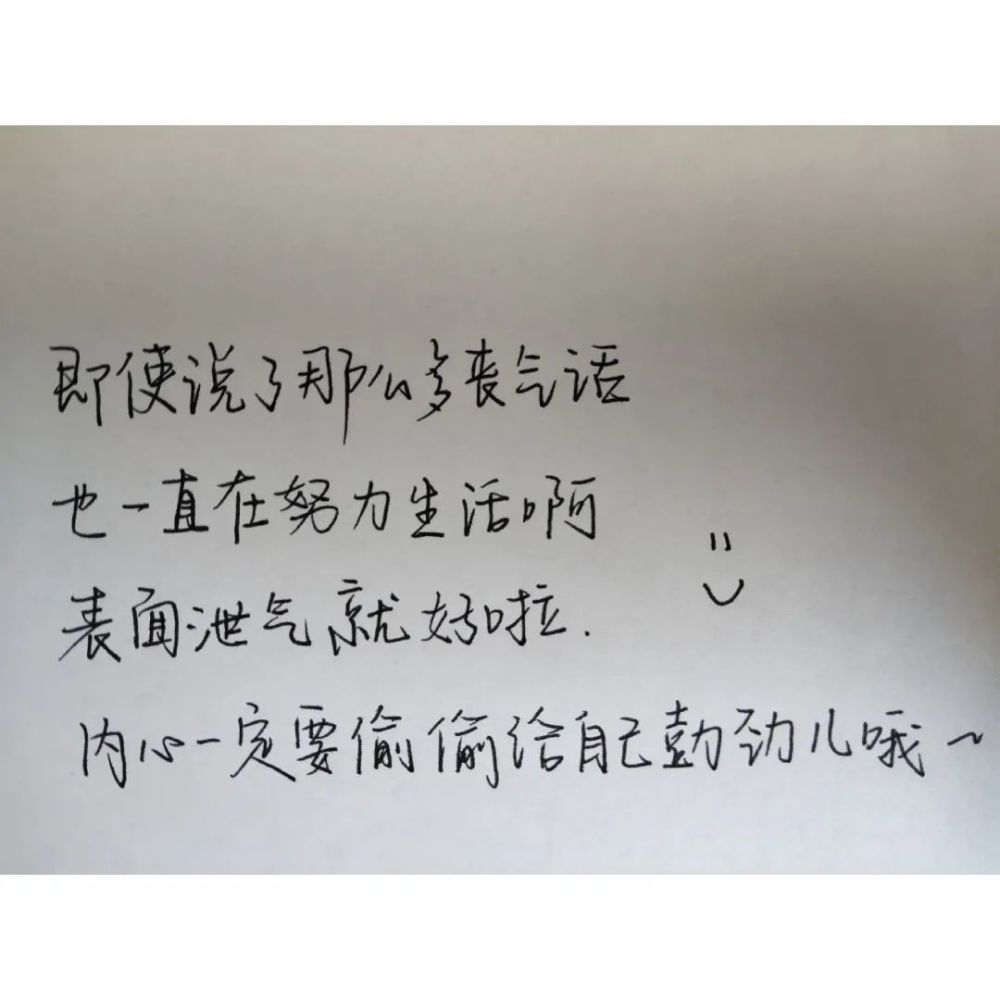 即使说了那么多丧气话
也一直在努力生活啊
表面泄气就好啦.
内心一定要偷偷给自己鼓劲儿哦~